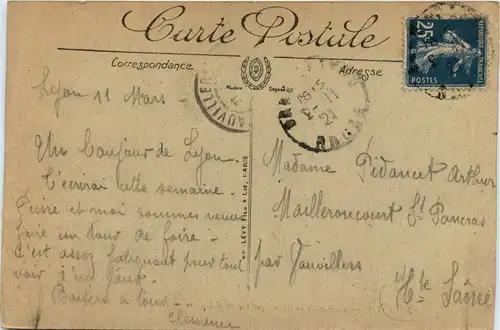 Carte Postale
Correspondance
Adresse
Modèle Déposé
RÉPUBLIQUE FRANÇAISE
25c
POSTES
VAUVILLERS
RHONE
18 15
11 - 3
21
LEVY FILS & Cie, PARIS
Lyon 11 Mars -
Un bonjour de Lyon.
J'écrirai cette semaine.
Pierre et moi sommes venus
faire un tour de foire -
C'est assez fatiguant pour tout
voir d'un jour
Baisers à tous -
Madame Pidancet Arthur
Mailleroncourt St Pancras
par Vauvillers
Hte Saône